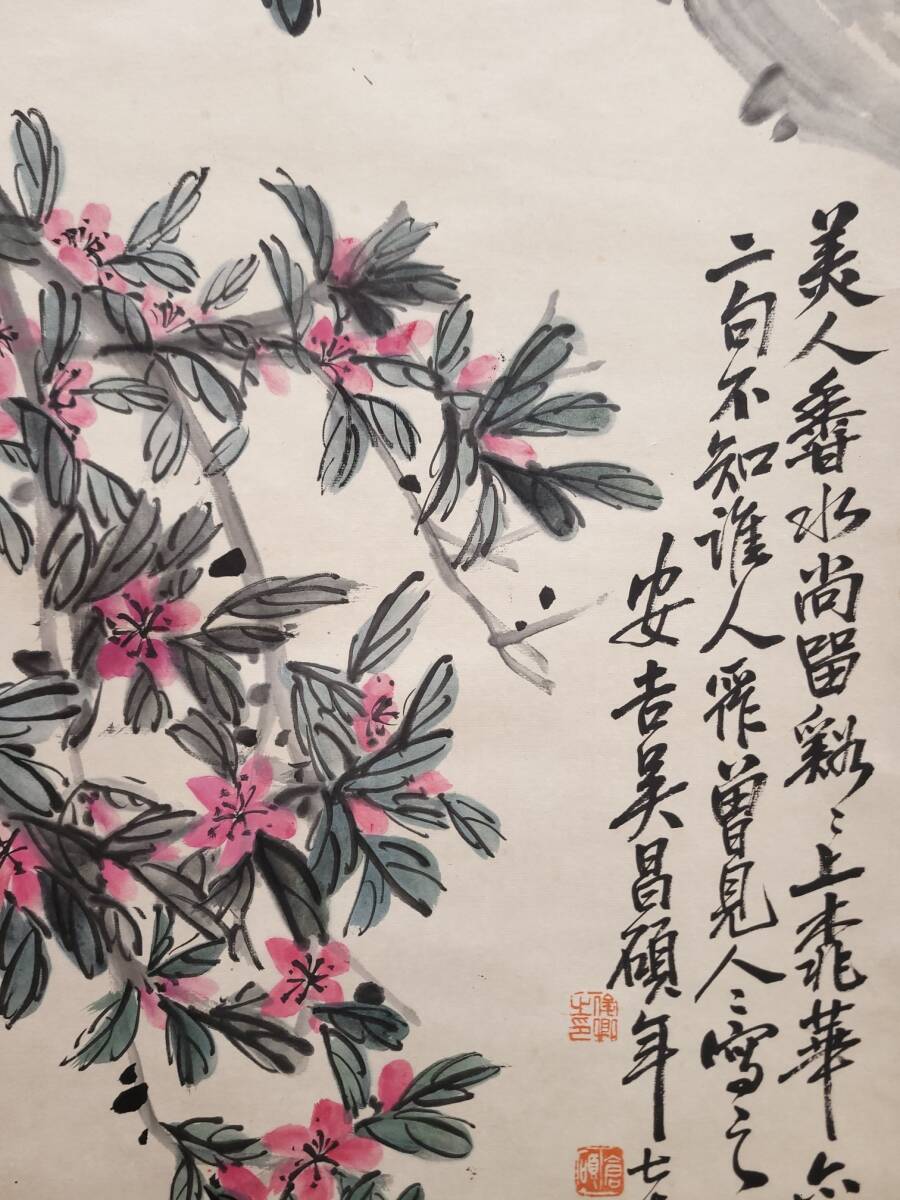 美人香水尚畱谿〻上桃華
二句不知誰人作曾見人〻寫之
安吉吳昌碩年七
俊卿之印
倉碩